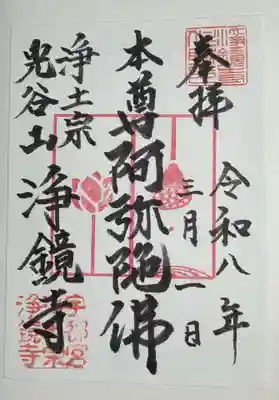 奉拝
令和八年
三月一日
本尊阿弥陀佛
浄土宗
光谷山
浄鏡寺
浄鏡寺